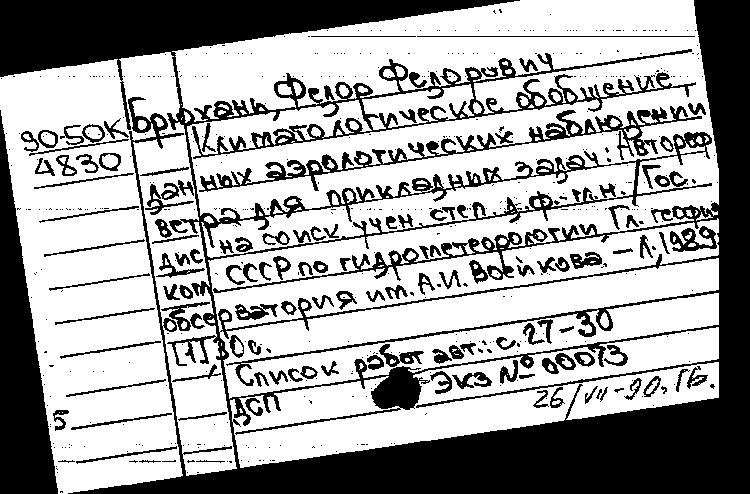 Брюхань, Федор Федорович
90-50К
4830
Климатологическое обобщение
данных аэрологических наблюдений
ветра для прикладных задач: Автореф
дис. на соиск. учен. степ. д.ф.-м.н. / Гос.
ком. СССР по гидрометеорологии, Гл. геофиз
обсерватория им. А.И. Воейкова. – Л., 1989.
[1], 30 с.
Список работ авт.: с. 27-30
ДСП Экз № 00073
5
26/VII-90. ГБ.